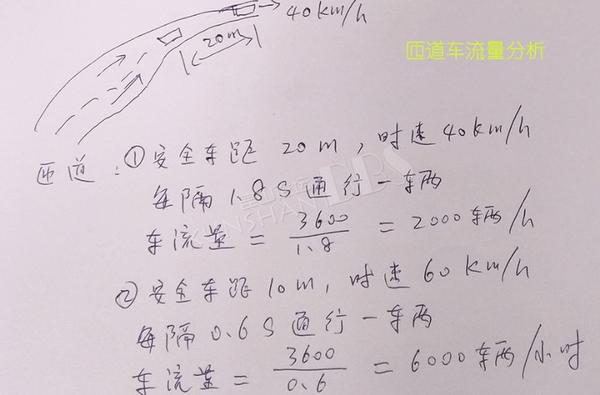 40km/h
20m
匝道车流量分析
匝道：①安全车距 20m，时速40km/h
每隔1.8S通行一车两
车流量 = 3600/1.8 = 2000车两/h
②安全车距10m，时速60km/h
每隔0.6S通行一车两
车流量 = 3600/0.6 = 6000车两/小时